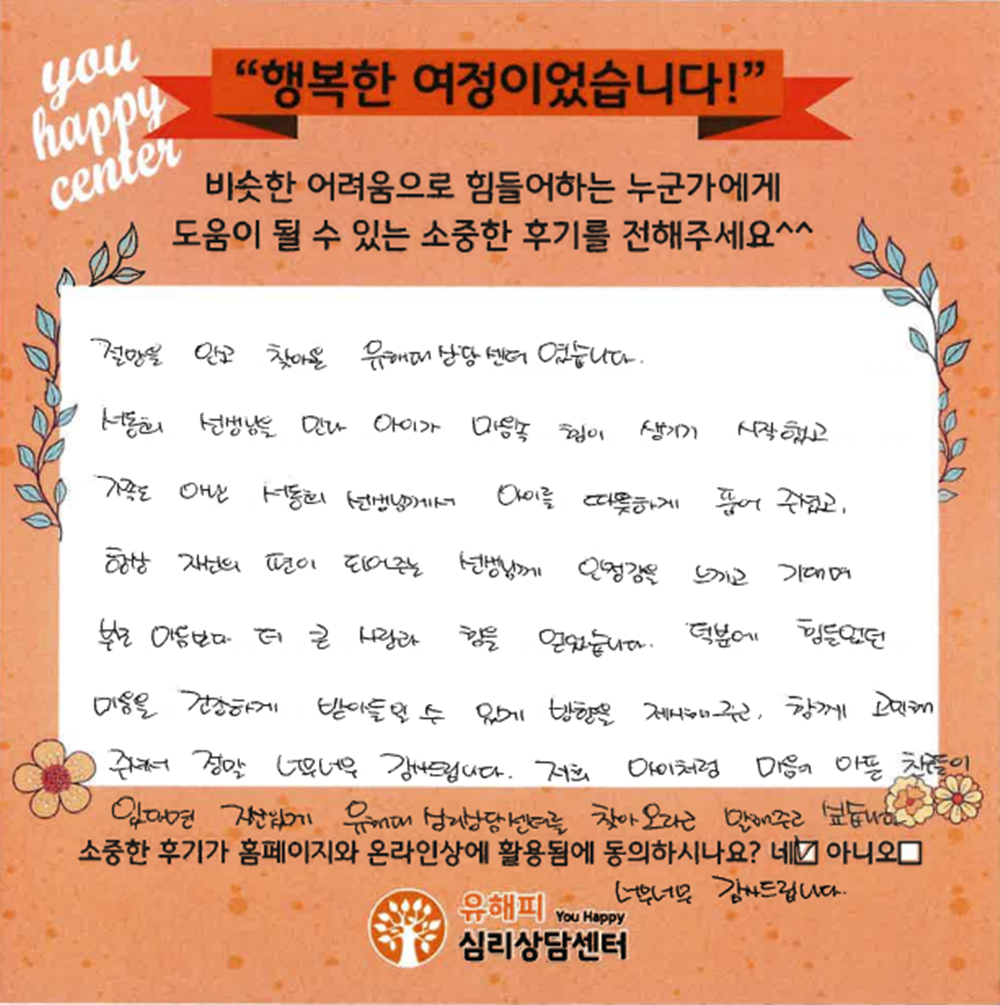 you
happy
center
“행복한 여정이었습니다!”
비슷한 어려움으로 힘들어하는 누군가에게
도움이 될 수 있는 소중한 후기를 전해주세요^^
절망을 안고 찾아온 유해피상담센터 였습니다.
서동희 선생님을 만나 아이가 마음속 힘이 생기기 시작했고
가족도 아닌 서동희 선생님께서 아이를 따뜻하게 품어 주셨고,
항상 자신의 편이 되어주는 선생님께 안정감을 느끼고 기대며
부모 마음보다 더 큰 사랑과 힘을 얻었습니다. 덕분에 힘들었던
마음을 건강하게 받아들일 수 있게 방향을 제시해주고, 함께 고민해
주셔서 정말 너무너무 감사드립니다. 저희 아이처럼 마음이 아픈 친구들이
있다면 자신있게 유해피 심리상담센터를 찾아오라고 말해주고 싶습니다
소중한 후기가 홈페이지와 온라인상에 활용됨에 동의하시나요? 네☑ 아니오☐
너무너무 감사드립니다.
유해피 You Happy
심리상담센터